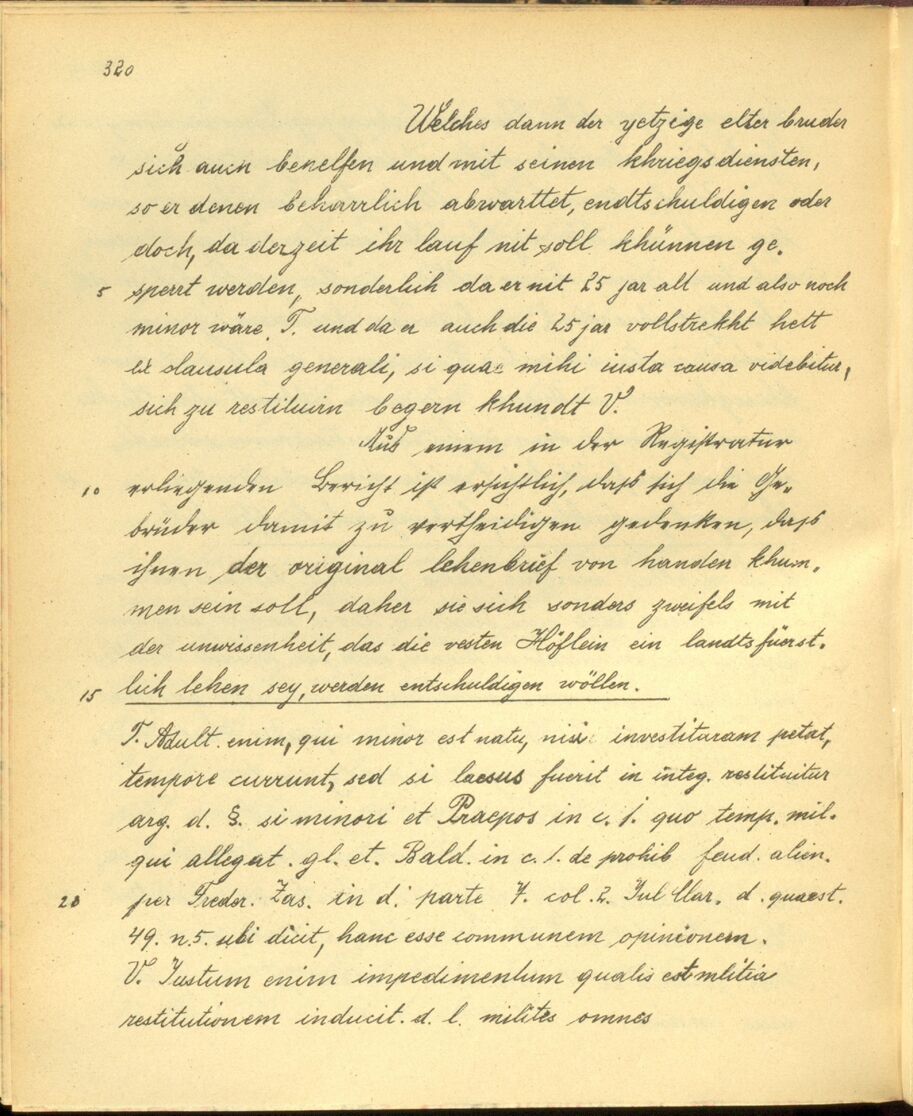 320
Welches dann der yetzige elter bruder
sich auch behelfen und mit seinen khriegsdiensten,
so er denen beharrlich abwarttet, endtschuldigen oder
doch, da derzeit ihr lauf nit soll khünnen ge-
5 sperrt werden, sonderlich da er nit 25 jar alt und also noch
minor wäre T. und da er auch die 25 jar vollstrekht hett
ex clausula generali, si quae mihi iusta causa videbitur,
sich zu restituirn begern khundt V.
Aus einem in der Registratur
10 erliegenden Bericht ist ersichtlich, daß sich die Ge-
brüder damit zu vertheidigen gedenken, daß
ihnen der original lehenbrief von handen khum-
men sein soll, daher sie sich sonders zweifels mit
der unwissenheit, das die vesten Höflein ein landtsfüerst-
15 lich lehen sey, werden entschuldigen wöllen.
T. Adult. enim, qui minor est natu, nisi investituram petat,
tempore currunt, sed si laesus fuerit in integ. restituitur
arg. d. §. si minori et Praepos in c. 1. quo temp. mil.
qui allegat. gl. et. Bald. in c. 1. de prohib feud. alien.
20 per Freder. Zas. in d. parte 7. col. 2. Jul Clar. d. quaest.
49. n. 5. ubi dicit, hanc esse communem opinionem.
V. Iustum enim impedimentum qualis est militia
restitutionem inducit. d. l. milites omnes